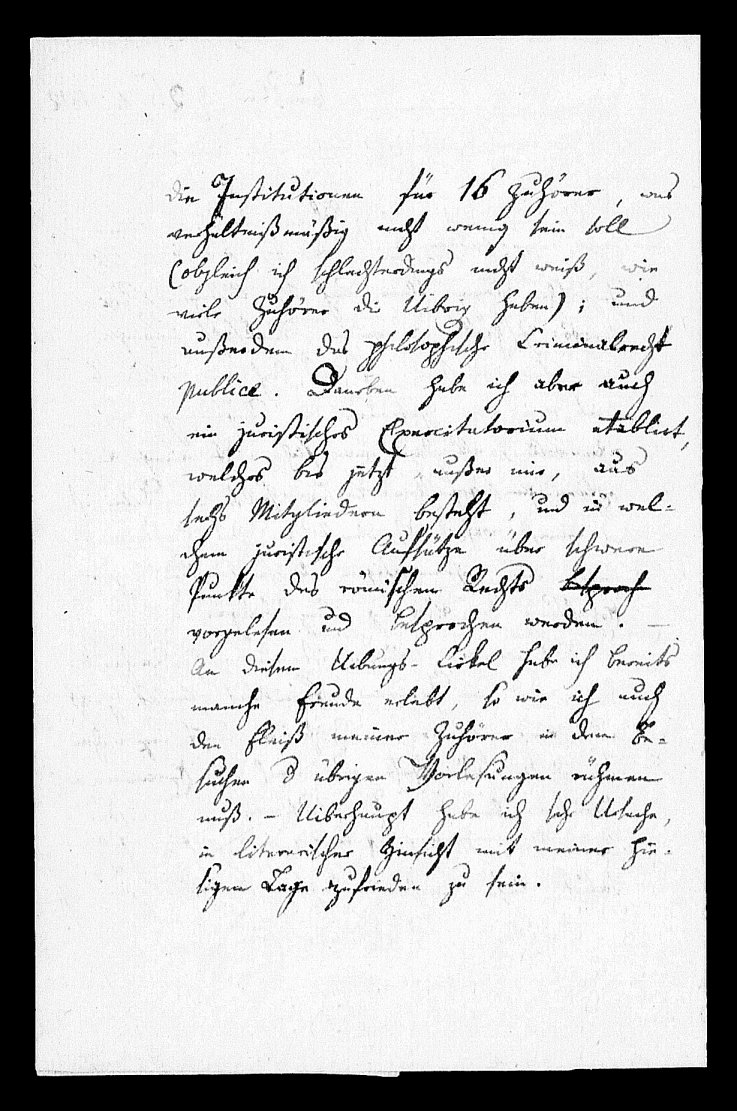 die Institutionen für 16 Zuhörer, was
verhältnißmäßig nicht wenig sein soll
(obgleich ich schlechterdings nicht weiß, wie
viele Zuhörer die Uibrig haben); und
außerdem das philosophische Criminalrecht
publice. Daneben habe ich aber auch
ein juristisches Exercitatorium etablirt,
welches bis jetzt, außer mir, aus
sechs Mitgliedern besteht, und in wel-
chem juristische Aufsätze über schwere
Punkte des römischen Rechts besproch
vorgelesen und besprochen werden. —
An diesem Uibungs-Cirkel habe ich bereits
manche Freude erlebt, so wie ich auch
den Fleiß meiner Zuhörer in dem Be-
suchen d übrigen Vorlesungen rühmen
muß. – Uiberhaupt habe ich sehr Ursache,
in literarischer Hinsicht mit meiner hie-
sigen Lage zufrieden zu sein.